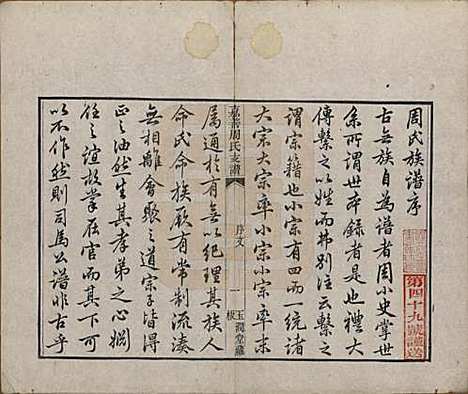 周氏族譜序
古無族自為譜者周小史掌世
系所謂世本録者是也禮大
傳繫之以姓而弗別注云繫之
謂宗籍也小宗有四而一統諸
大宗大宗率小宗小宗率末
嘉善周氏支譜
序文
一
玉潤堂藏板
屬通於有無以紀理其族人
命氏命族厥有常制流湊
無相離會聚之道宗子皆得
正之油然生其孝弟之心姻
任之誼故掌在官而其下可
以不作然則司為公譜非古乎
第四十九號譜送